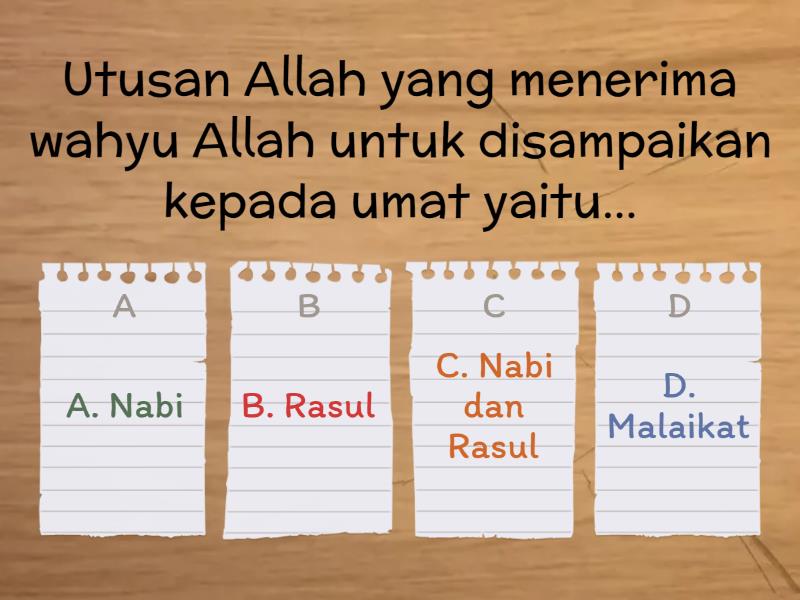 Utusan Allah yang menerima
wahyu Allah untuk disampaikan
kepada umat yaitu...
A
B
C
D
A. Nabi
B. Rasul
C. Nabi
dan
Rasul
D.
Malaikat